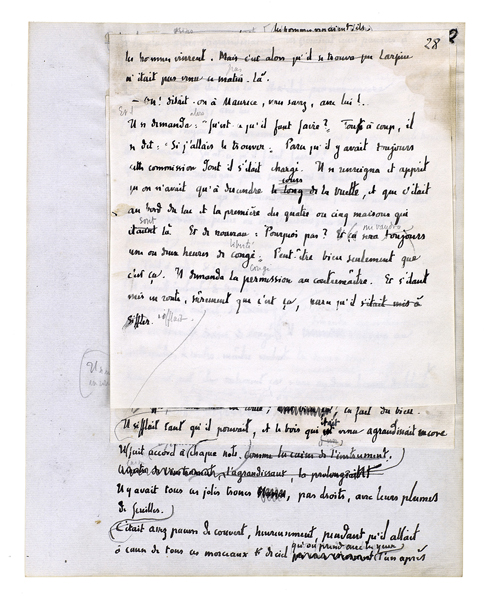 les hommes venaient
28
les hommes vinrent. Mais c'est alors qu'il se trouva que Largine
n'était pas venu ce matin-là.
— Oh! disait-on à Maurice, vous savez, avec lui!..
Il se demanda: "Qu'est-ce qu'il faut faire"? Tout à coup, il
se dit: "Si j'allais le trouver". Parce qu'il y avait toujours
cette commission dont il s'était chargé. Il se renseigna et apprit
qu'on n'avait qu'à descendre le long de la ruelle, et que c'était
cours
au bord du lac et la première des quatre ou cinq maisons qui
sont
étaient là. Et de nouveau: Pourquoi pas? Et ça me toujours
liberté
une ou deux heures de congé. Peut-être bien seulement que
congé
c'est ça. Il demanda la permission au contremaître. Et s'étant
mis en route, sûrement que c'est ça, parce qu'il s'était mis à
siffler. sifflait.
ça fait du bien.
Il sifflait tant qu'il pouvait, et le bois qui est venu agrandissait encore
était
accord à chaque note. comme la caisse de l'instrument.
l'agrandissant, la prolongeait
Il y avait tous ces jolis troncs pas droits, avec leurs plumes
de feuilles.
C'était assez pauvre de couvert, heureusement, pendant qu'il allait
à cause de tous ces morceaux de ciel qu'on prend avec les yeux l'un après